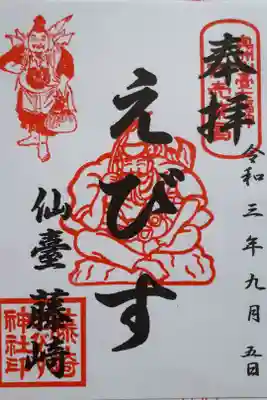 奉拝
令和三年九月五日
えびす
仙臺 藤崎
藤崎
神社印